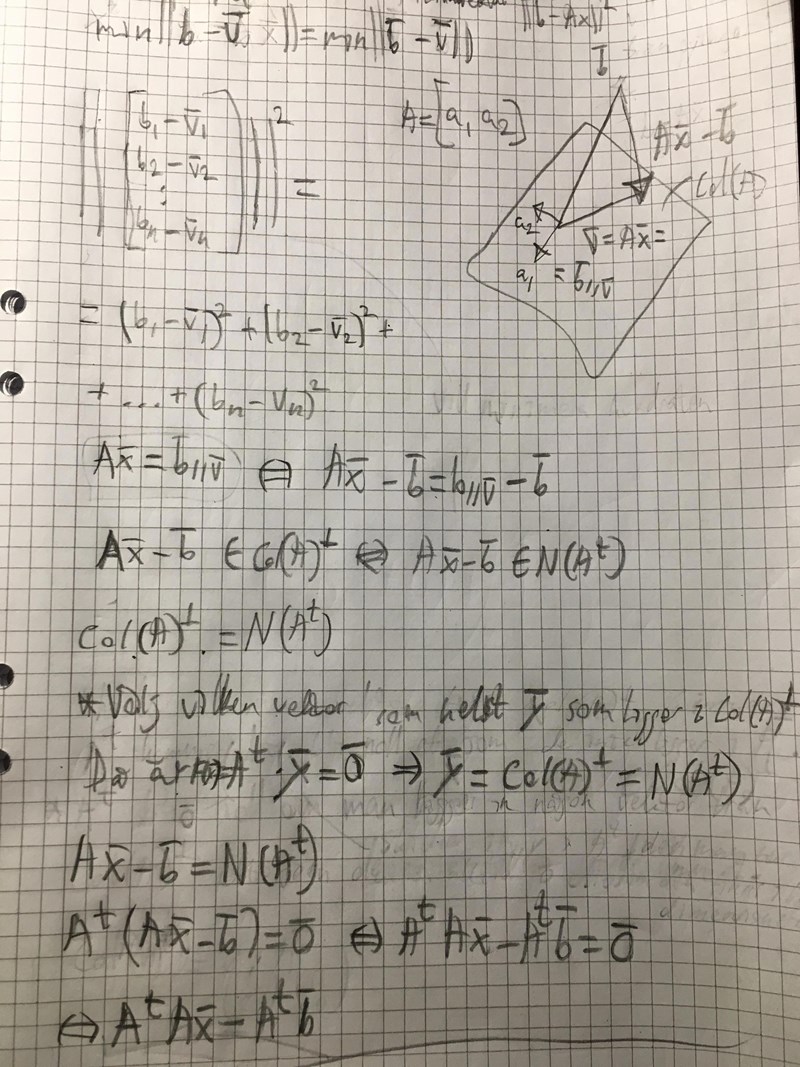 ||b-Ax||²
min||b̄-V̄||=min||b̄-V̄||
||[b₁-v̄₁
b₂-v̄₂
⋮
bₙ-v̄ₙ]||² =
A=[a₁ a₂]
Ax̄-b̄
Col(A)
a₂
V̄=Ax̄=
a₁ = b̄//V̄
= (b₁-v̄₁)²+(b₂-v̄₂)²+
+...+(bₙ-vₙ)²
Ax̄=b̄//V̄ ⇔ Ax̄-b̄=b//V̄-b̄
Ax̄-b̄ ∈ Col(A)⊥ ⇔ Ax̄-b̄ ∈N(Aᵗ)
Col(A)⊥=N(Aᵗ)
*Välj vilken vektor som helst ȳ som ligger i Col(A)⊥
Då är Aᵗ·ȳ=0̄ ⇒ ȳ=Col(A)⊥=N(Aᵗ)
Ax̄-b̄=N(Aᵗ)
Aᵗ(Ax̄-b̄)=0̄ ⇔ AᵗAx̄-Aᵗb̄=0̄
⇔ AᵗAx̄-Aᵗb̄